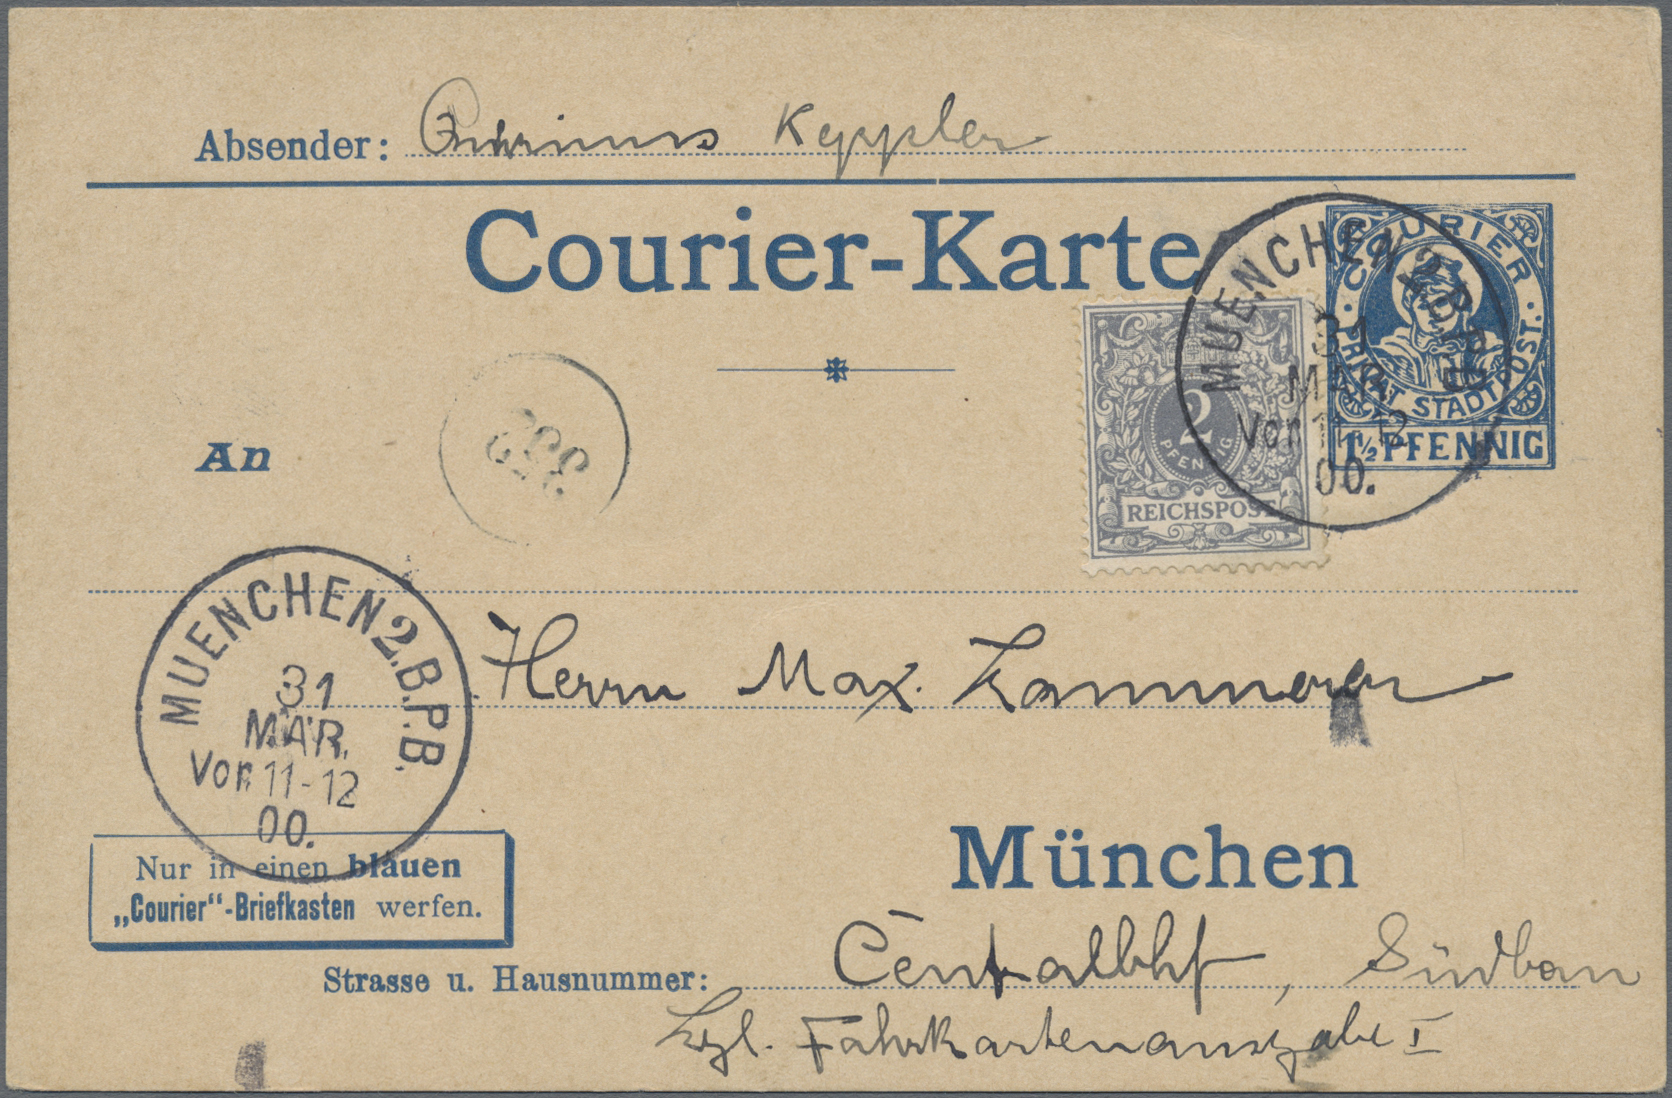 Absender: Keppler
Courier-Karte
COURIER
PRIVAT STADTPOST.
1½ PFENNIG
MUENCHEN 2.B.P.B.
31
MAR.
Vor. 11-12
00.
2
PFENNIG
REICHSPOST
An
MUENCHEN 2.B.P.B.
31
MAR.
Vor. 11-12
00.
Herrn Max. Kammerer
Nur in einen blauen
„Courier“-Briefkasten werfen.
München
Strasse u. Hausnummer: Centralbhf, Südbau
kgl. Fahrkartenausgabe I